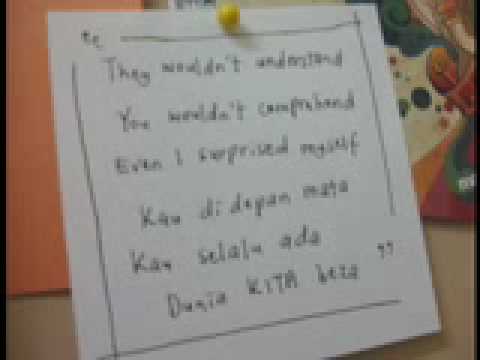 “
They wouldn't understand
You wouldn't comprehend
Even I surprised myself
Kau di depan mata
Kau selalu ada
Dunia KITA beza ”